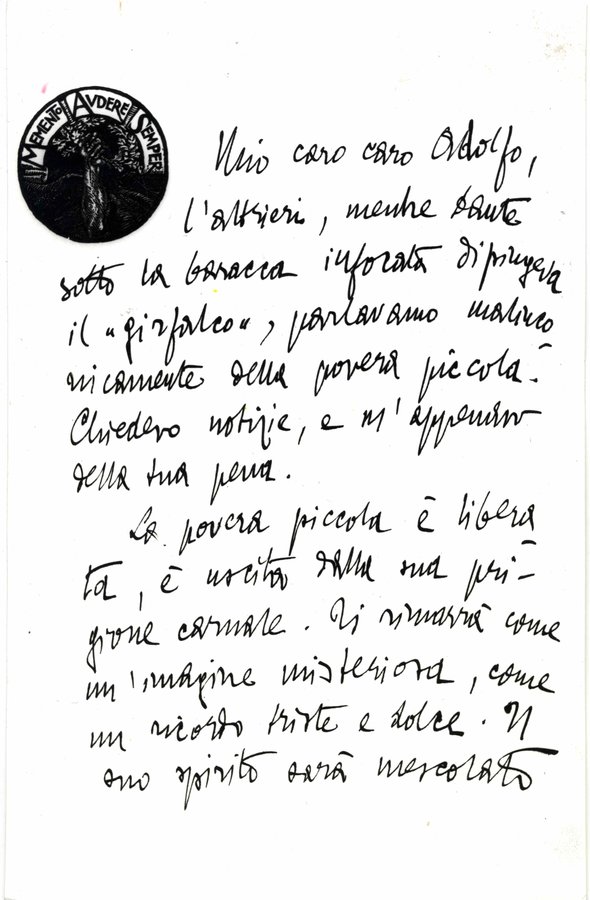 MEMENTO AVDERE SEMPER
Mio caro caro Adolfo,
l'altrieri, mentre Dante
sotto la baracca infocata dipingeva
il "girfalco", parlavamo malinco
nicamente della povera piccola.
Chiedevo notizie, e m'appenavo
della tua pena.
La povera piccola è libera
ta, è uscita dalla sua pri-
gione carnale. Ti rimarrà come
un'imagine misteriosa, come
un ricordo triste e dolce. Il
suo spirito sarà mescolato